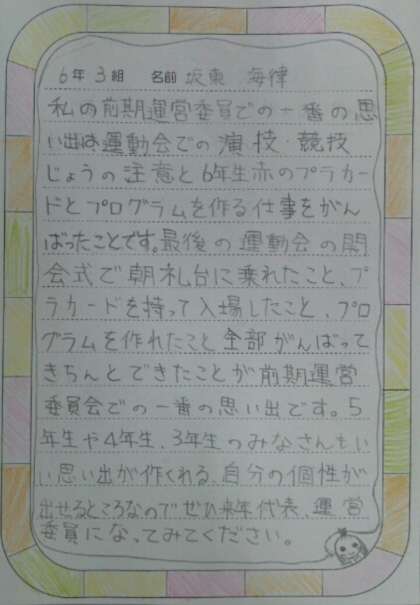 6年 3組 名前 坂東 海律
私の前期運営委員での一番の思
い出は運動会での演技・競技
じょうの注意と6年生赤のプラカー
ドとプログラムを作る仕事をがん
ばったことです。最後の運動会の開
会式で朝礼台に乗れたこと、プ
ラカードを持って入場したこと、プロ
グラムを作れたこと全部がんばって
きちんとできたことが前期運営
委員会での一番の思い出です。5
年生や4年生、3年生のみなさんもい
い思い出が作くれる、自分の個性が
出せるところなのでぜひ来年代表、運営
委員になってみてください。